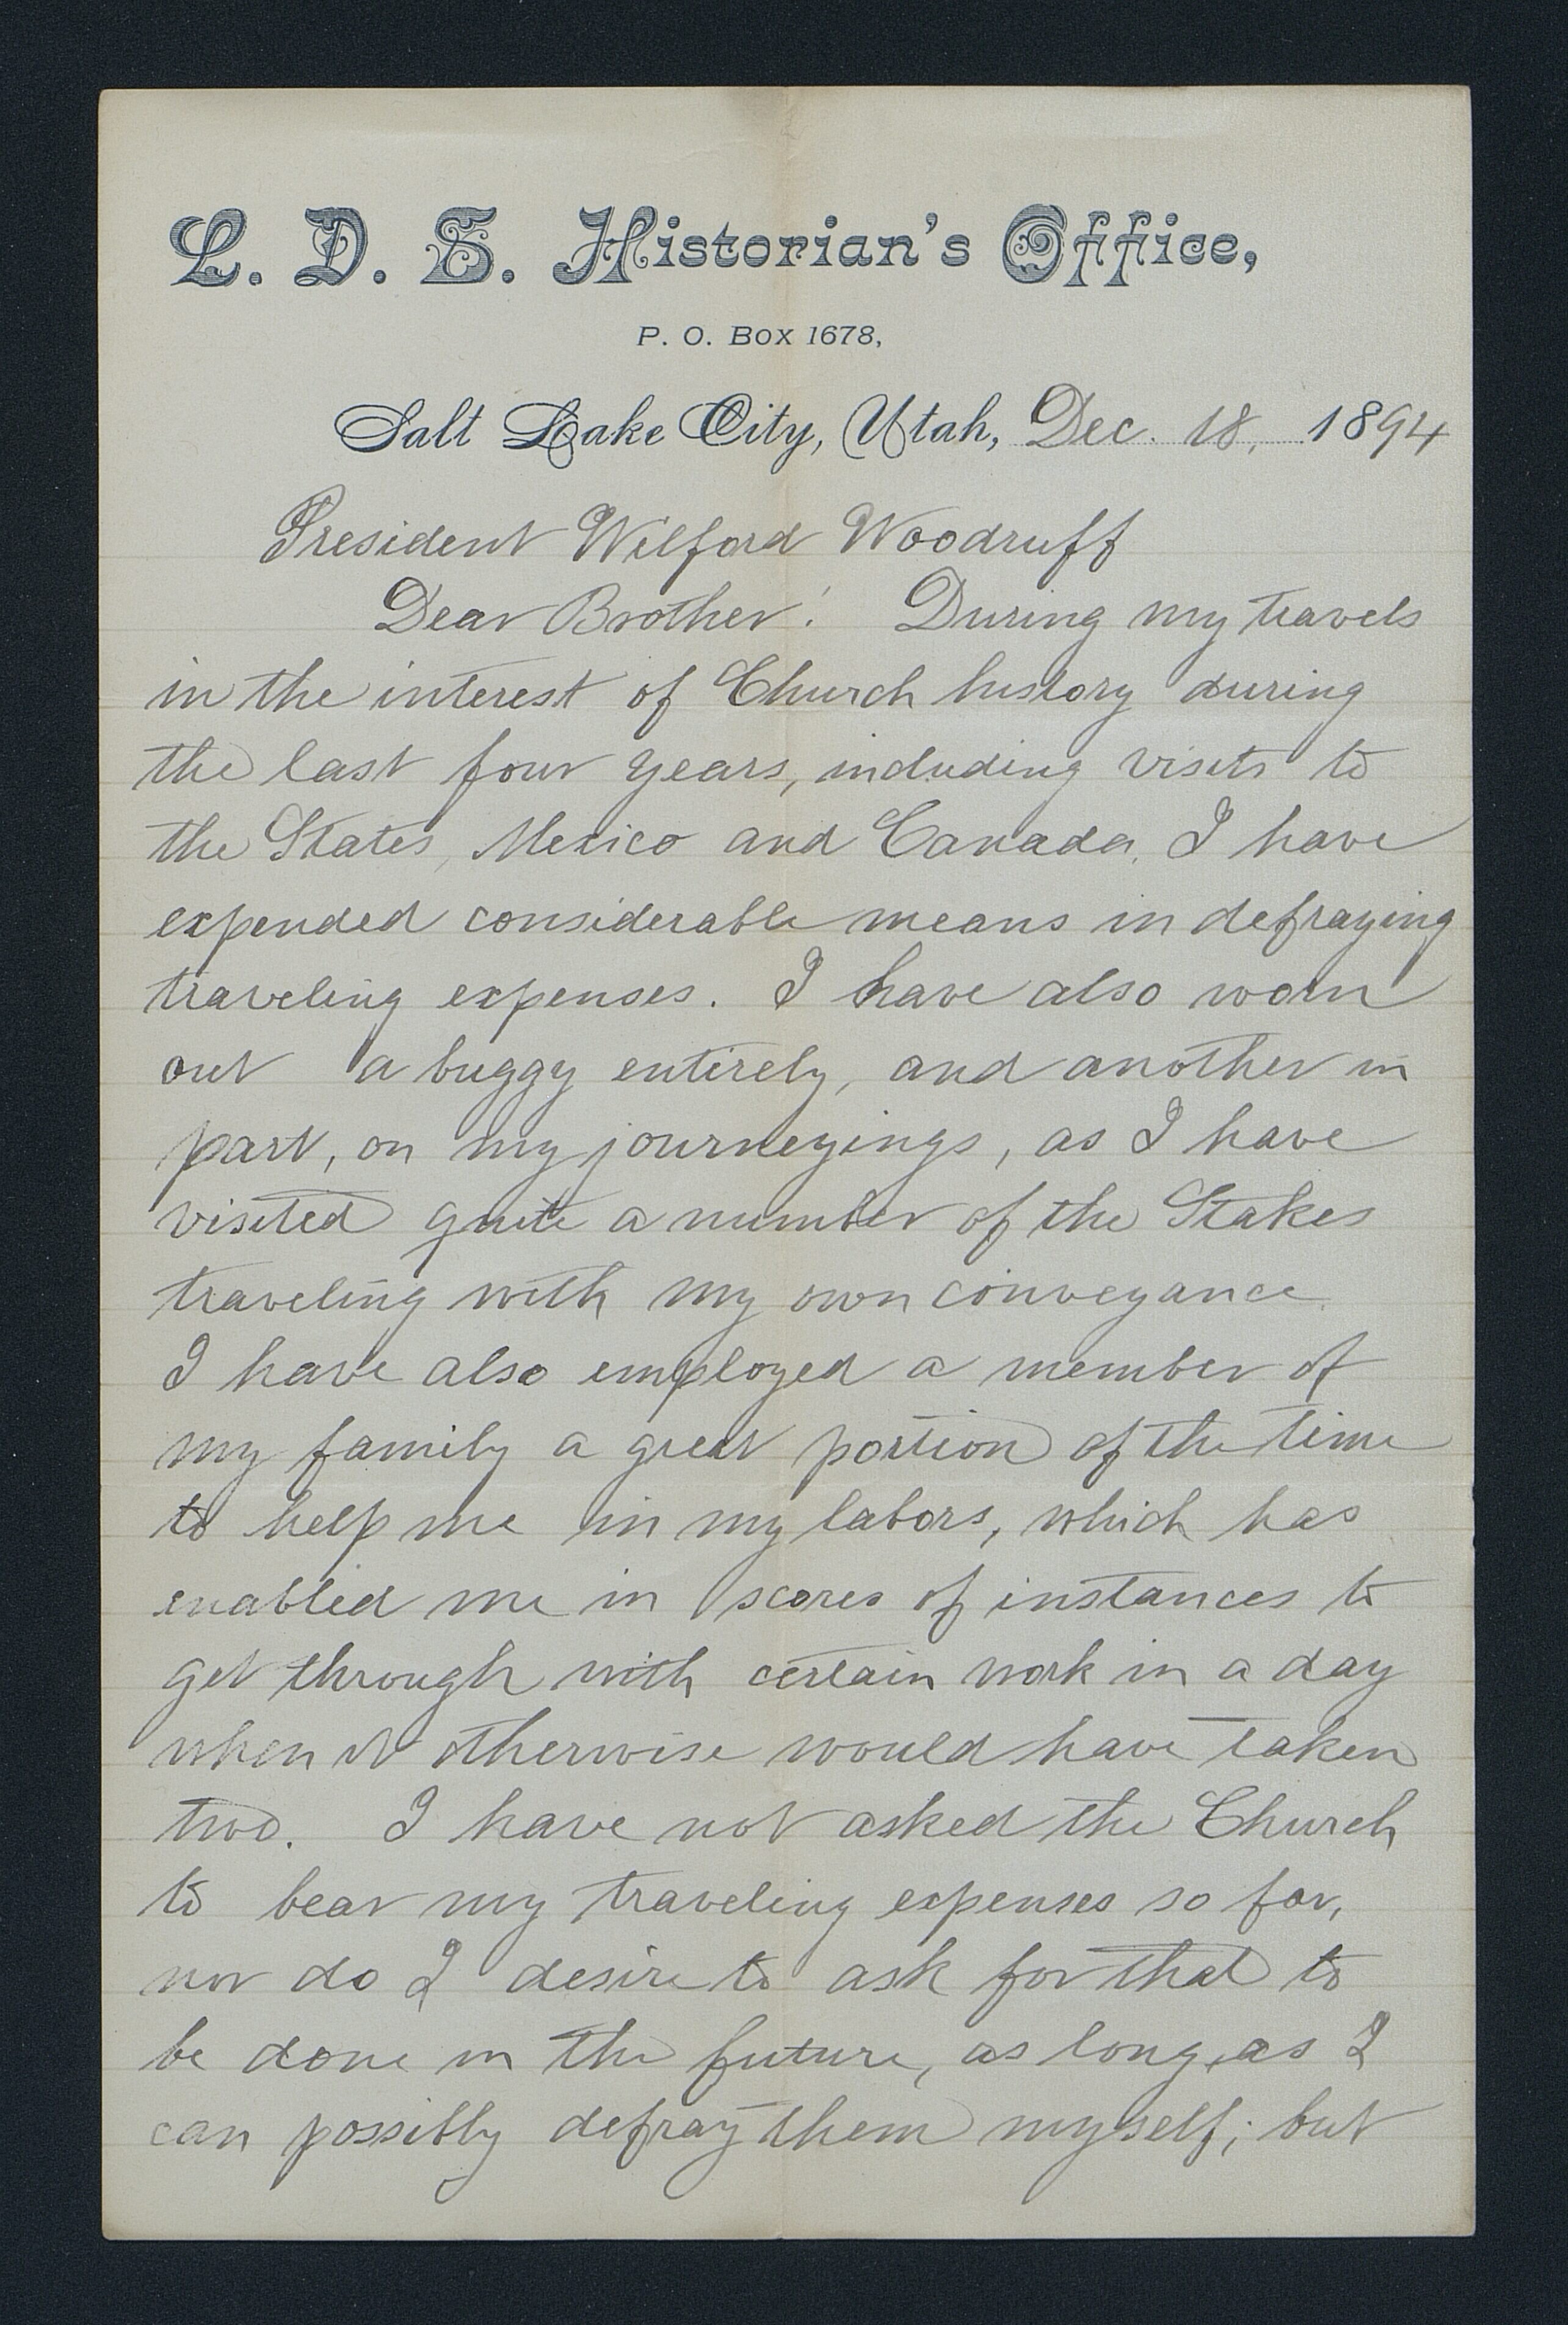 L. D. S. Historian's Office,
P. O. Box 1678,
Salt Lake City, Utah, Dec. 18, 1894
President Wilford Woodruff
Dear Brother! During my travels
in the interest of Church history during
the last four years, including visits to
the States, Mexico and Canada, I have
expended considerable means in defraying
traveling expenses. I have also worn
out a buggy entirely, and another in
part, on my journeyings, as I have
visited quite a number of the Stakes
traveling with my own conveyance.
I have also employed a member of
my family a great portion of the time
to help me in my labors, which has
enabled me in scores of instances to
get through with certain work in a day
when it otherwise would have taken
two. I have not asked the Church
to bear my traveling expenses so far,
nor do I desire to ask for that to
be done in the future, as long as I
can possibly defray them myself; but